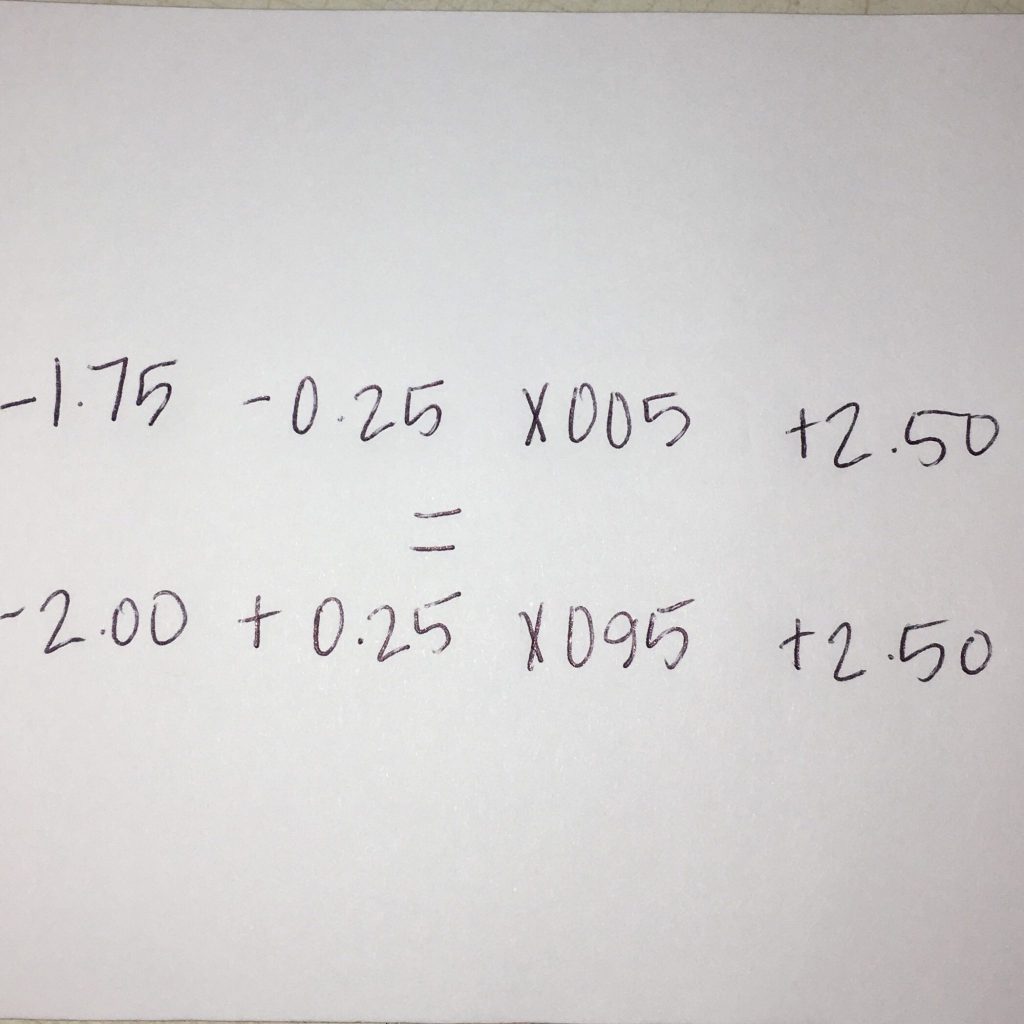 -1.75 -0.25 X005 +2.50
=
-2.00 +0.25 X095 +2.50